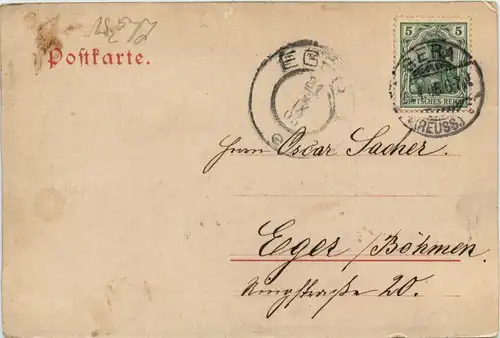 Postkarte.
5 5
DEUTSCHES REICH
GERA
(REUSS)
EGER
Herrn Oscar Sacher.
Eger /Böhmen.
Ringstraße 20.